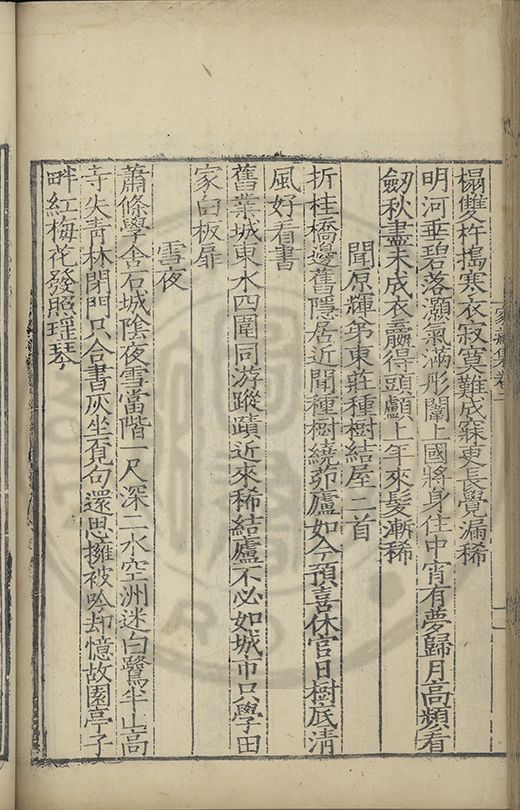 家藏集卷二
榻雙杵搗寒衣寂寞難成寐更長覺漏稀
明河垂碧落灝氣滿彤闈上國將身住中宵有夢歸月高頻看
劒秋盡未成衣贏得頭顱上年來髮漸稀
聞原輝弟東莊種樹結屋二首
折桂橋邊舊隱居近聞種樹繞茆廬如今預喜休官日樹底清
風好看書
舊業城東水四圍同游蹤蹟近來稀結廬不必如城市只學田
家白板扉
雪夜
蕭條學舍石城陰夜雪當階一尺深二水空洲迷白鷺半山高
寺失青林閉門只合書灰坐覓句還思擁被吟却憶故園亭子
畔紅梅花發照瑤琴